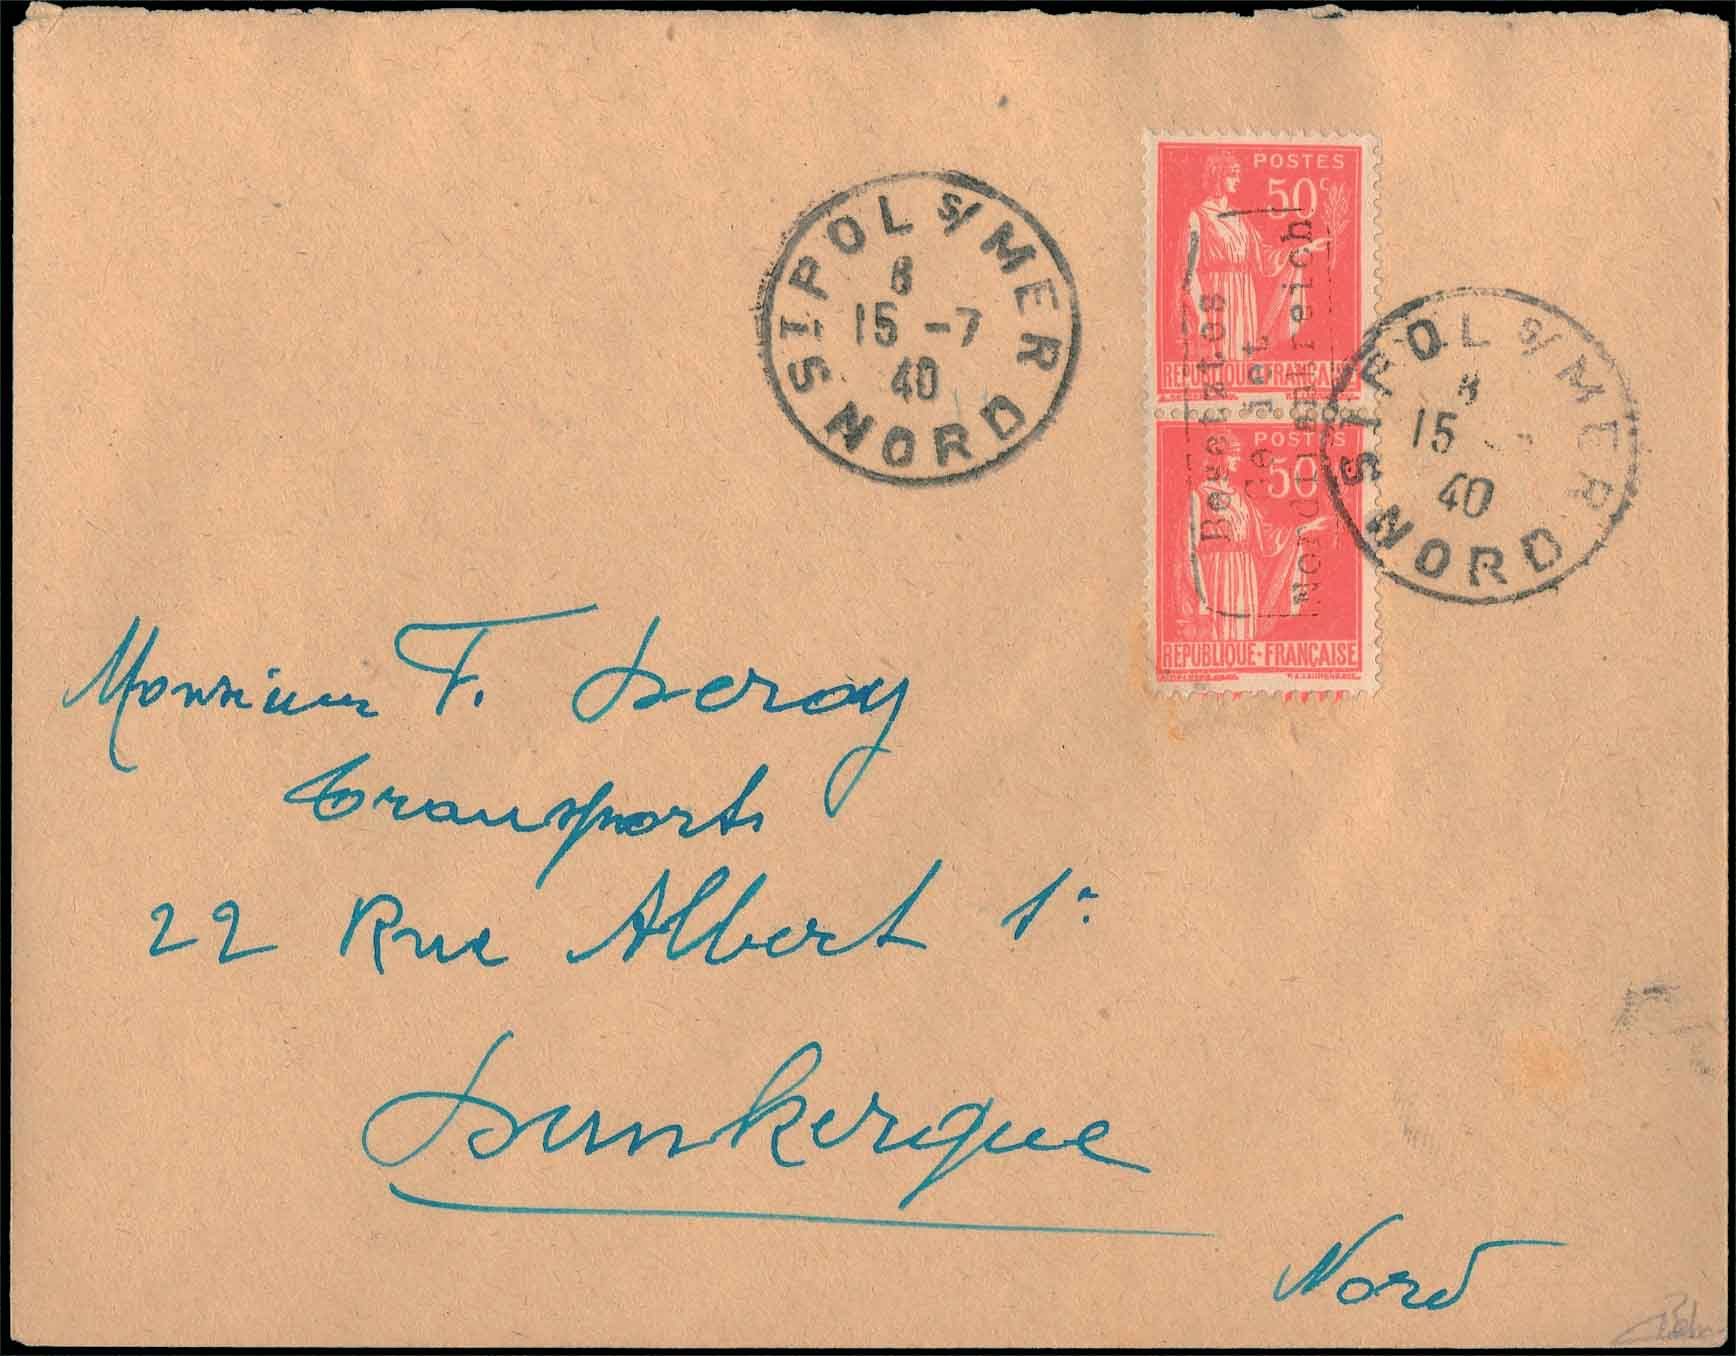 ST POL S/ MER
8
15 -7
40
NORD
POSTES
50c
REPUBLIQUE FRANÇAISE
POSTES
50
REPUBLIQUE-FRANÇAISE
Besetztes
Gebiet
Nordfrankreich
ST POL S/ MER
8
15
40
NORD
Monsieur F. Deroy
Transports
22 Rue Albert 1er
Dunkerque
Nord